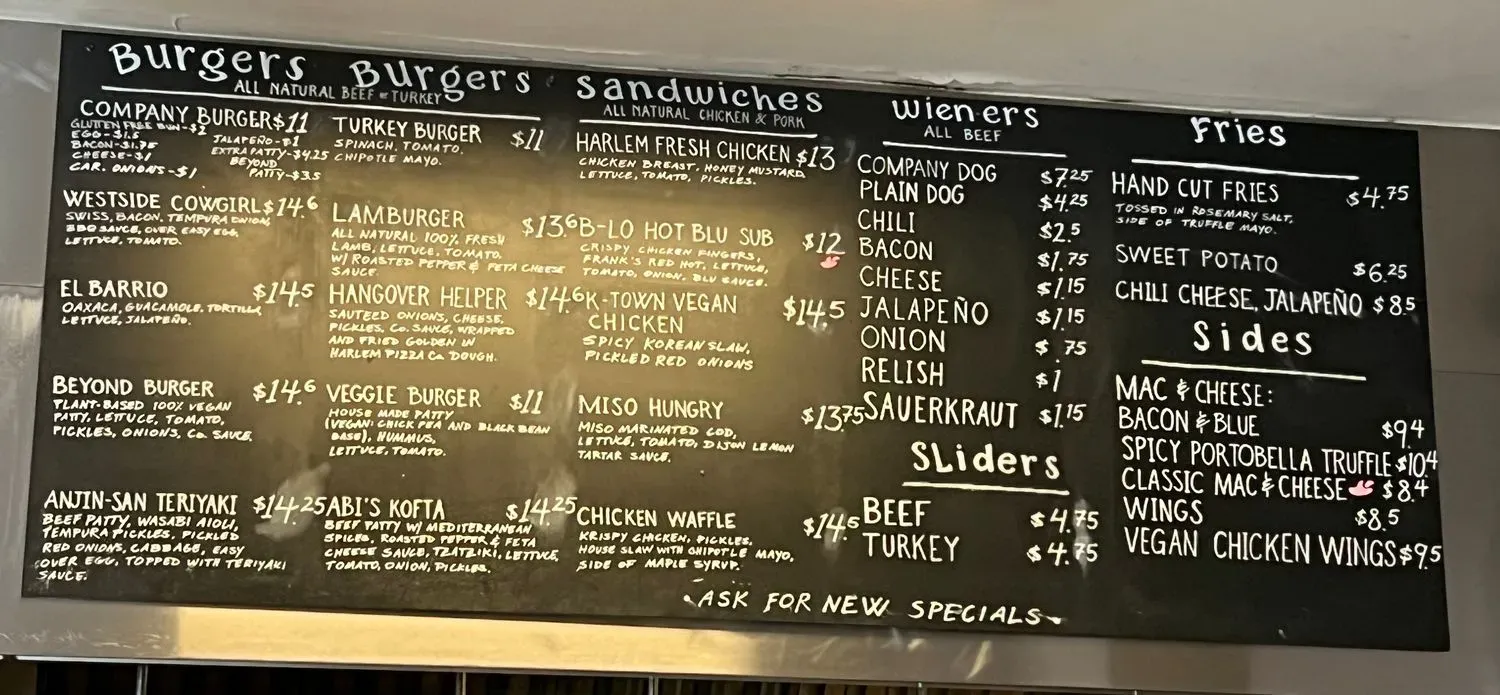 Burgers Burgers
ALL NATURAL BEEF & TURKEY
COMPANY BURGER $11
GLUTEN FREE BUN-$2
EGG-$1.5
BACON-$1.75
CHEESE-$1
CAR. ONIONS-$1
JALAPEÑO-$1
EXTRA PATTY-$4.25
BEYOND
PATTY-$3.5
WESTSIDE COWGIRL $14.6
SWISS, BACON, TEMPURA ONION,
BBQ SAUCE, OVER EASY EGG,
LETTUCE, TOMATO.
EL BARRIO $14.5
OAXACA, GUACAMOLE, TORTILLA,
LETTUCE, JALAPEÑO.
BEYOND BURGER $14.6
PLANT-BASED 100% VEGAN
PATTY, LETTUCE, TOMATO,
PICKLES, ONIONS, Co. SAUCE.
ANJIN-SAN TERIYAKI $14.25
BEEF PATTY, WASABI AIOLI,
TEMPURA PICKLES, PICKLED
RED ONIONS, CABBAGE, EASY
OVER EGG, TOPPED WITH TERIYAKI
SAUCE.
TURKEY BURGER $11
SPINACH, TOMATO,
CHIPOTLE MAYO.
LAMBURGER $13.6
ALL NATURAL 100% FRESH
LAMB, LETTUCE, TOMATO,
W/ ROASTED PEPPER & FETA CHEESE
SAUCE.
HANGOVER HELPER $14.6
SAUTEED ONIONS, CHEESE,
PICKLES, Co. SAUCE, WRAPPED
AND FRIED GOLDEN IN
HARLEM PIZZA Co. DOUGH.
VEGGIE BURGER $11
HOUSE MADE PATTY
(VEGAN: CHICK PEA AND BLACK BEAN
BASE), HUMMUS,
LETTUCE, TOMATO.
ABI'S KOFTA $14.25
BEEF PATTY W/ MEDITERRANEAN
SPICES, ROASTED PEPPER & FETA
CHEESE SAUCE, TZATZIKI, LETTUCE,
TOMATO, ONION, PICKLES.
Sandwiches
ALL NATURAL CHICKEN & PORK
HARLEM FRESH CHICKEN $13
CHICKEN BREAST, HONEY MUSTARD
LETTUCE, TOMATO, PICKLES.
B-LO HOT BLU SUB $12
CRISPY CHICKEN FINGERS,
FRANK'S RED HOT, LETTUCE,
TOMATO, ONION, BLU SAUCE.
K-TOWN VEGAN $14.5
CHICKEN
SPICY KOREAN SLAW,
PICKLED RED ONIONS
MISO HUNGRY $13.75
MISO MARINATED COD,
LETTUCE, TOMATO, DIJON LEMON
TARTAR SAUCE.
CHICKEN WAFFLE $14.5
KRISPY CHICKEN, PICKLES,
HOUSE SLAW WITH CHIPOTLE MAYO,
SIDE OF MAPLE SYRUP.
Wieners
ALL BEEF
COMPANY DOG $7.25
PLAIN DOG $4.25
CHILI $2.5
BACON $1.75
CHEESE $1.15
JALAPEÑO $1.15
ONION $.75
RELISH $1
SAUERKRAUT $1.15
SLiders
BEEF $4.75
TURKEY $4.75
Fries
HAND CUT FRIES $4.75
TOSSED IN ROSEMARY SALT,
SIDE OF TRUFFLE MAYO.
SWEET POTATO $6.25
CHILI CHEESE, JALAPEÑO $8.5
Sides
MAC & CHEESE:
BACON & BLUE $9.4
SPICY PORTOBELLA TRUFFLE $10.4
CLASSIC MAC & CHEESE $8.4
WINGS $8.5
VEGAN CHICKEN WINGS $9.5
ASK FOR NEW SPECIALS